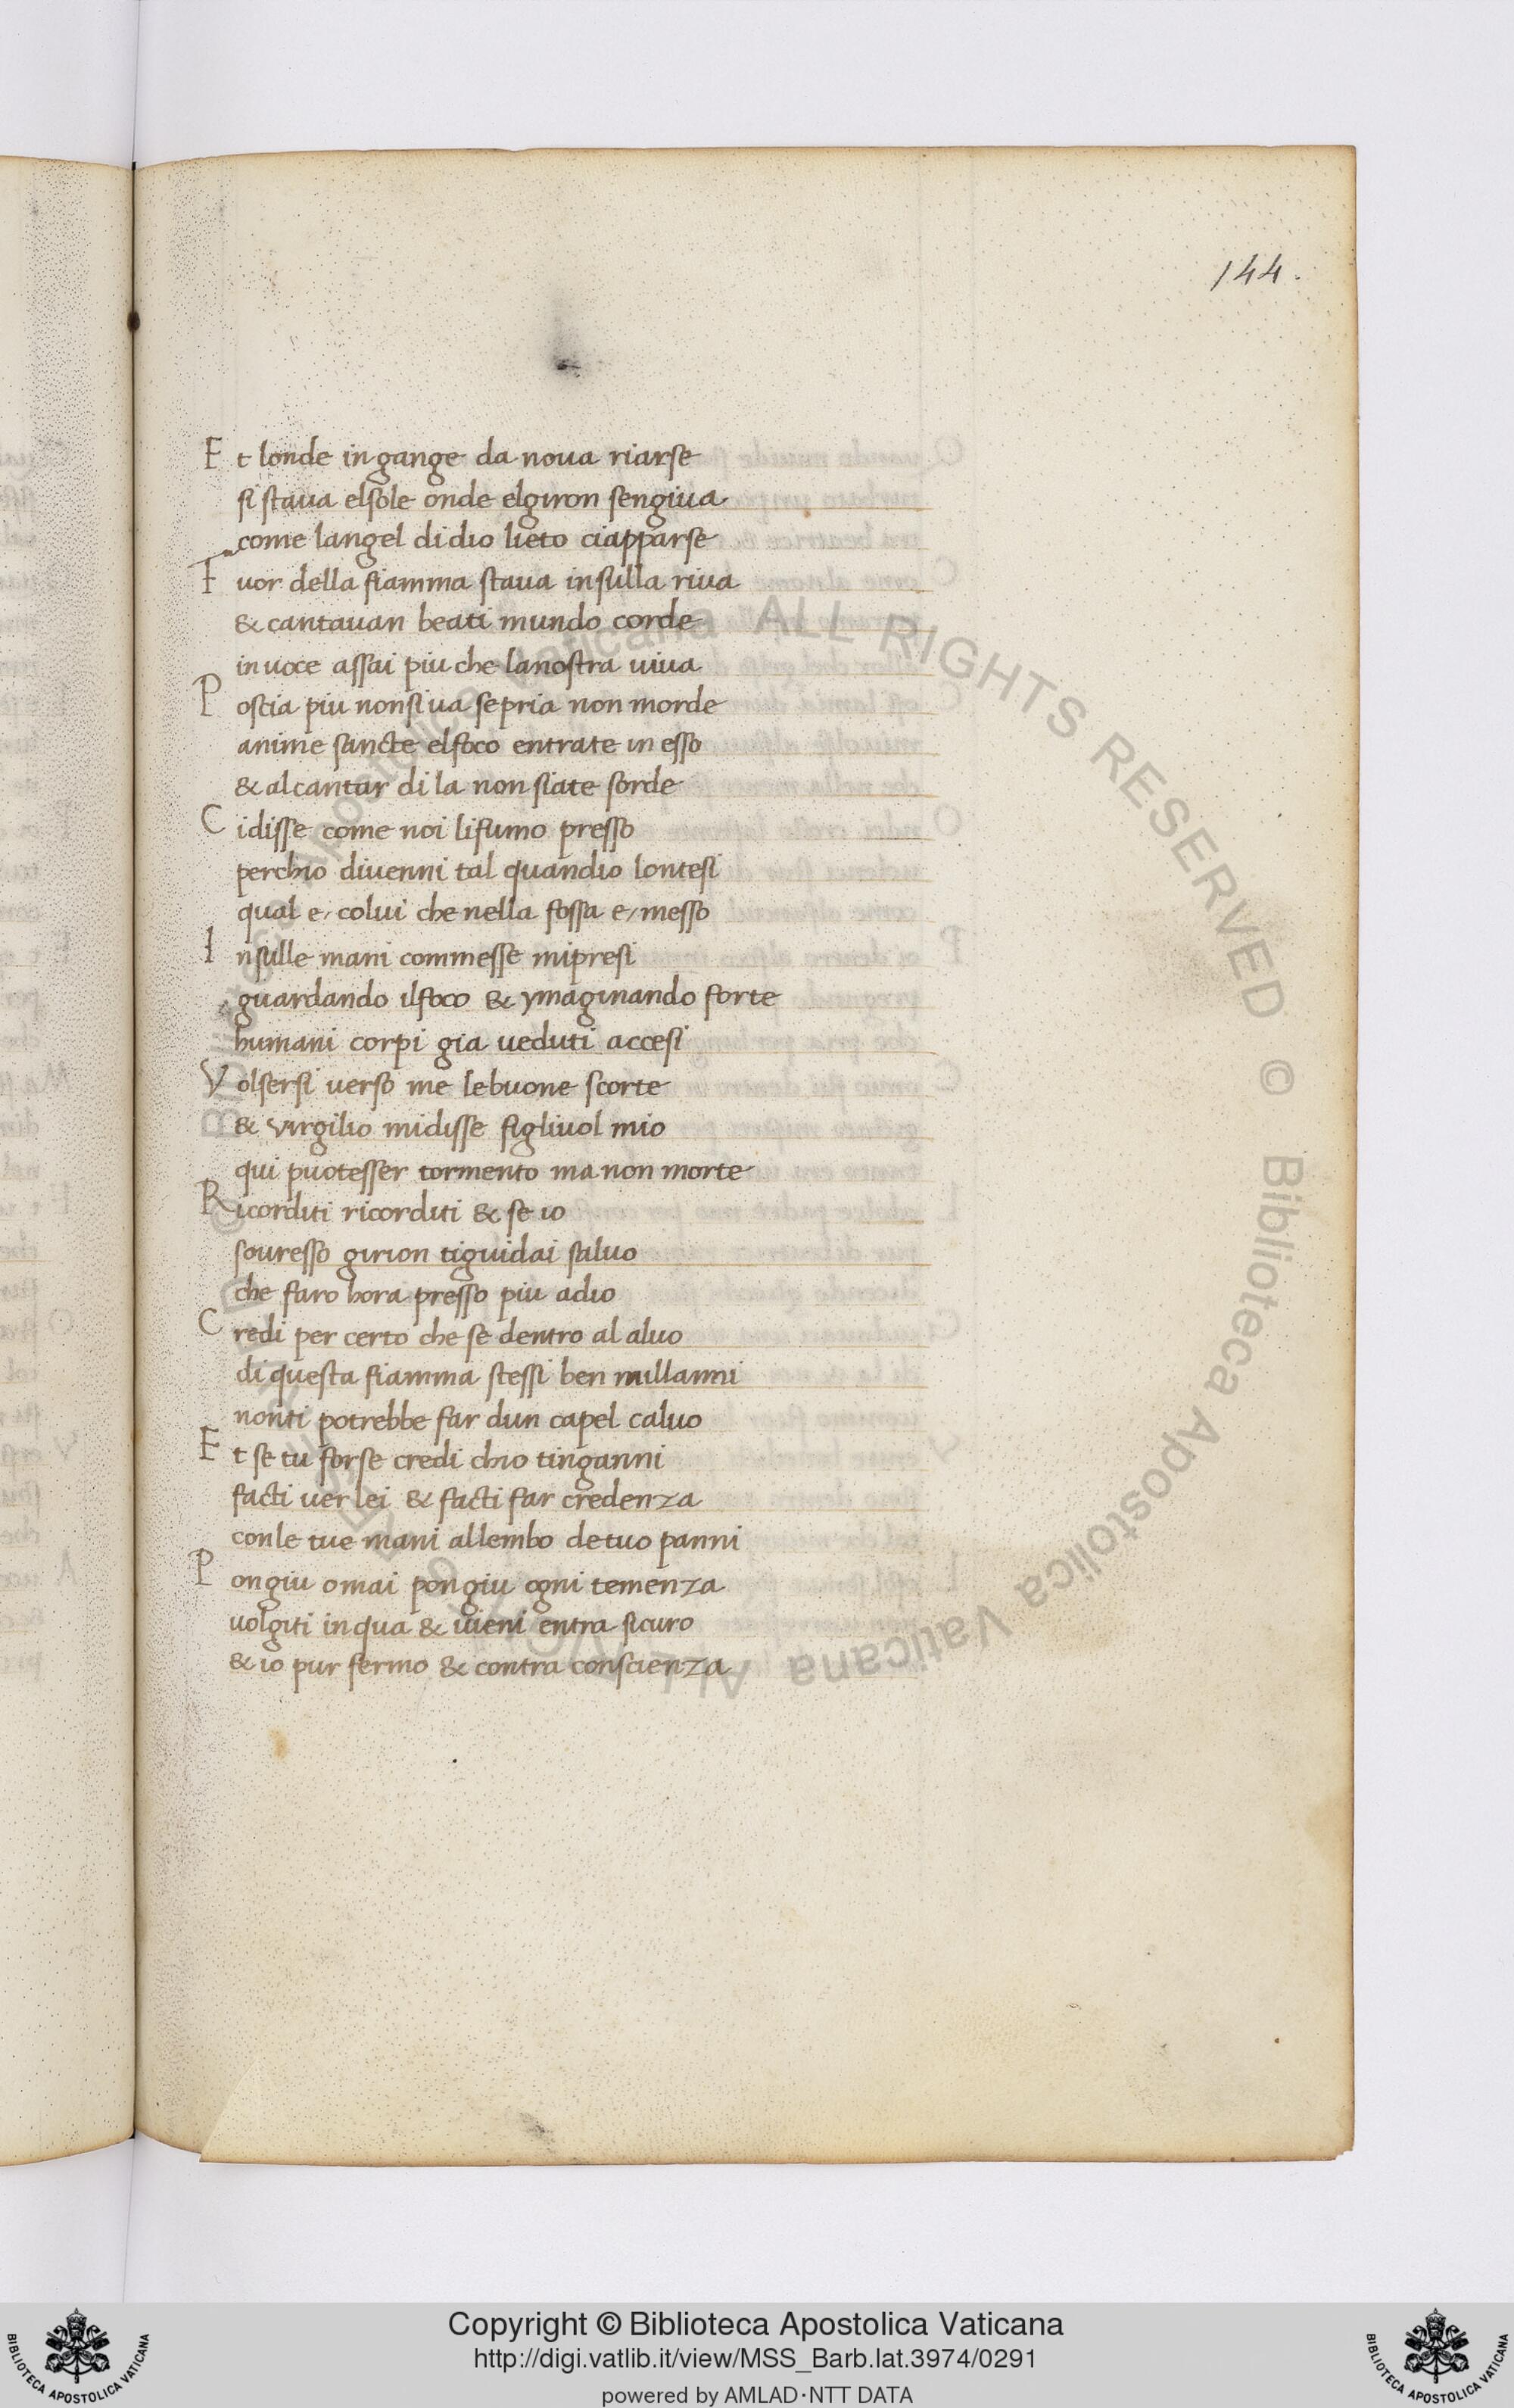 144.
Et londe in gange da noua riarse
si staua elsole onde elgiron sengiua
come langel didio lieto ciapparse
Fuor della fiamma staua insulla riua
& cantauan beati mundo corde
inuoce assai piu che lanostra uiua
Poscia piu nonsi ua sepria non morde
anime sancte elfoco entrate in esso
& alcantar di la non siate sorde
Cidisse come noi lifumo presso
perchio diuenni tal quandio lontesi
qual e/ colui che nella fossa e/ messo
Insulle mani commesse mipresi
guardando ilfoco & ymaginando forte
humani corpi gia ueduti accesi
Volsersi uerso me lebuone scorte
& virgilio midisse figliuol mio
qui puotesser tormento ma non morte
Ricorditi ricorditi & se io
souresso girion tiguidai saluo
che faro hora presso piu adio
Credi per certo che se dentro al aluo
di questa fiamma stessi ben millanni
nonti potrebbe far dun capel caluo
Et se tu forse credi chio tinganni
facti uer lei & facti far credenza
conle tue mani allembo detuo panni
Pongiu omai pongiu ogni temenza
uolgiti inqua & uieni entra sicuro
& io pur fermo & contra conscienza
ALL RIGHTS RESERVED © Biblioteca Apostolica Vaticana
Copyright © Biblioteca Apostolica Vaticana
http://digi.vatlib.it/view/MSS_Barb.lat.3974/0291
powered by AMLAD·NTT DATA
BIBLIOTECA APOSTOLICA VATICANA
BIBLIOTECA APOSTOLICA VATICANA